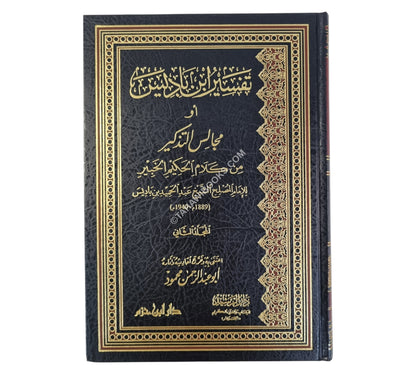 تفسير ابن باديس
أو
مجالس التذكير
من كلام الحكيم الخبير
للإمام المصلح الشيخ عبد الحميد بن باديس
(1889م-1940م)
المجلد الثاني
أبو عبد الرحمن محمود
دار ابن حزم